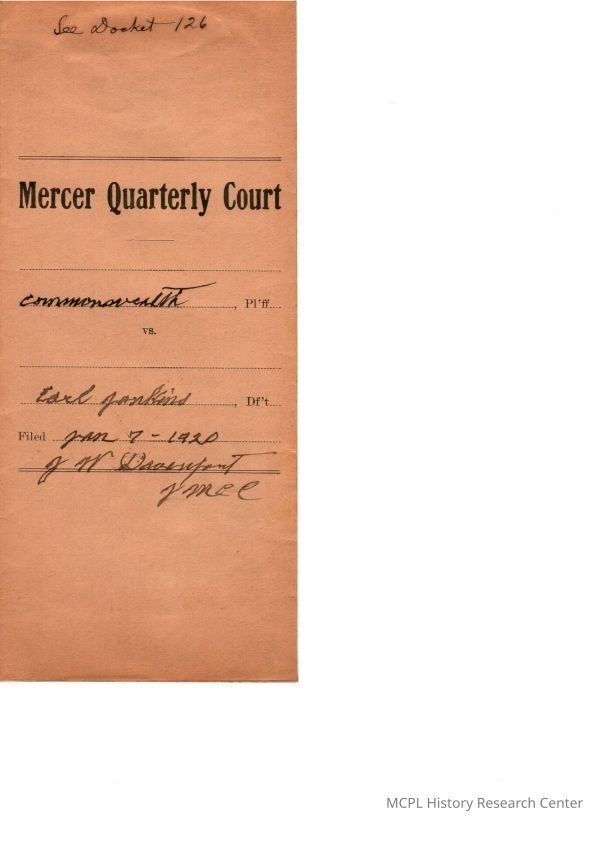 See Docket 126
Mercer Quarterly Court
commonwealth, Pl'ff.
vs.
Earl Jenkins, Df't.
Filed Jan 7 - 1920
J W Davenport
J M C C
MCPL History Research Center